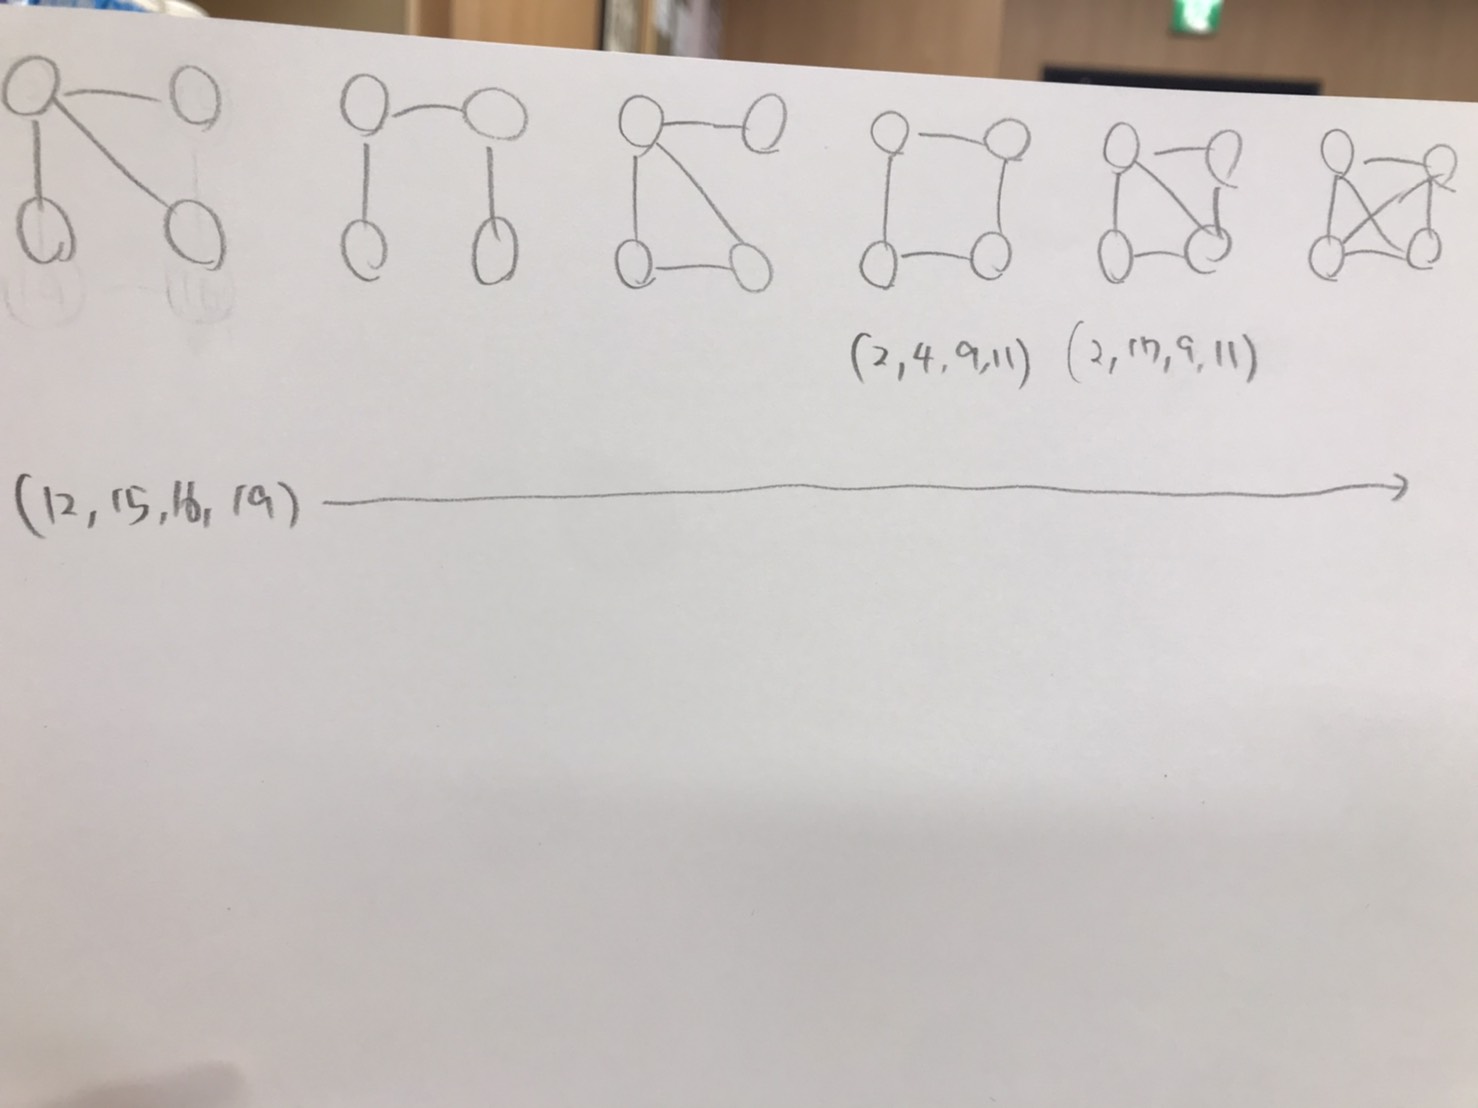 (2,4,9,11) (2,17,9,11)
(12,15,16,19)